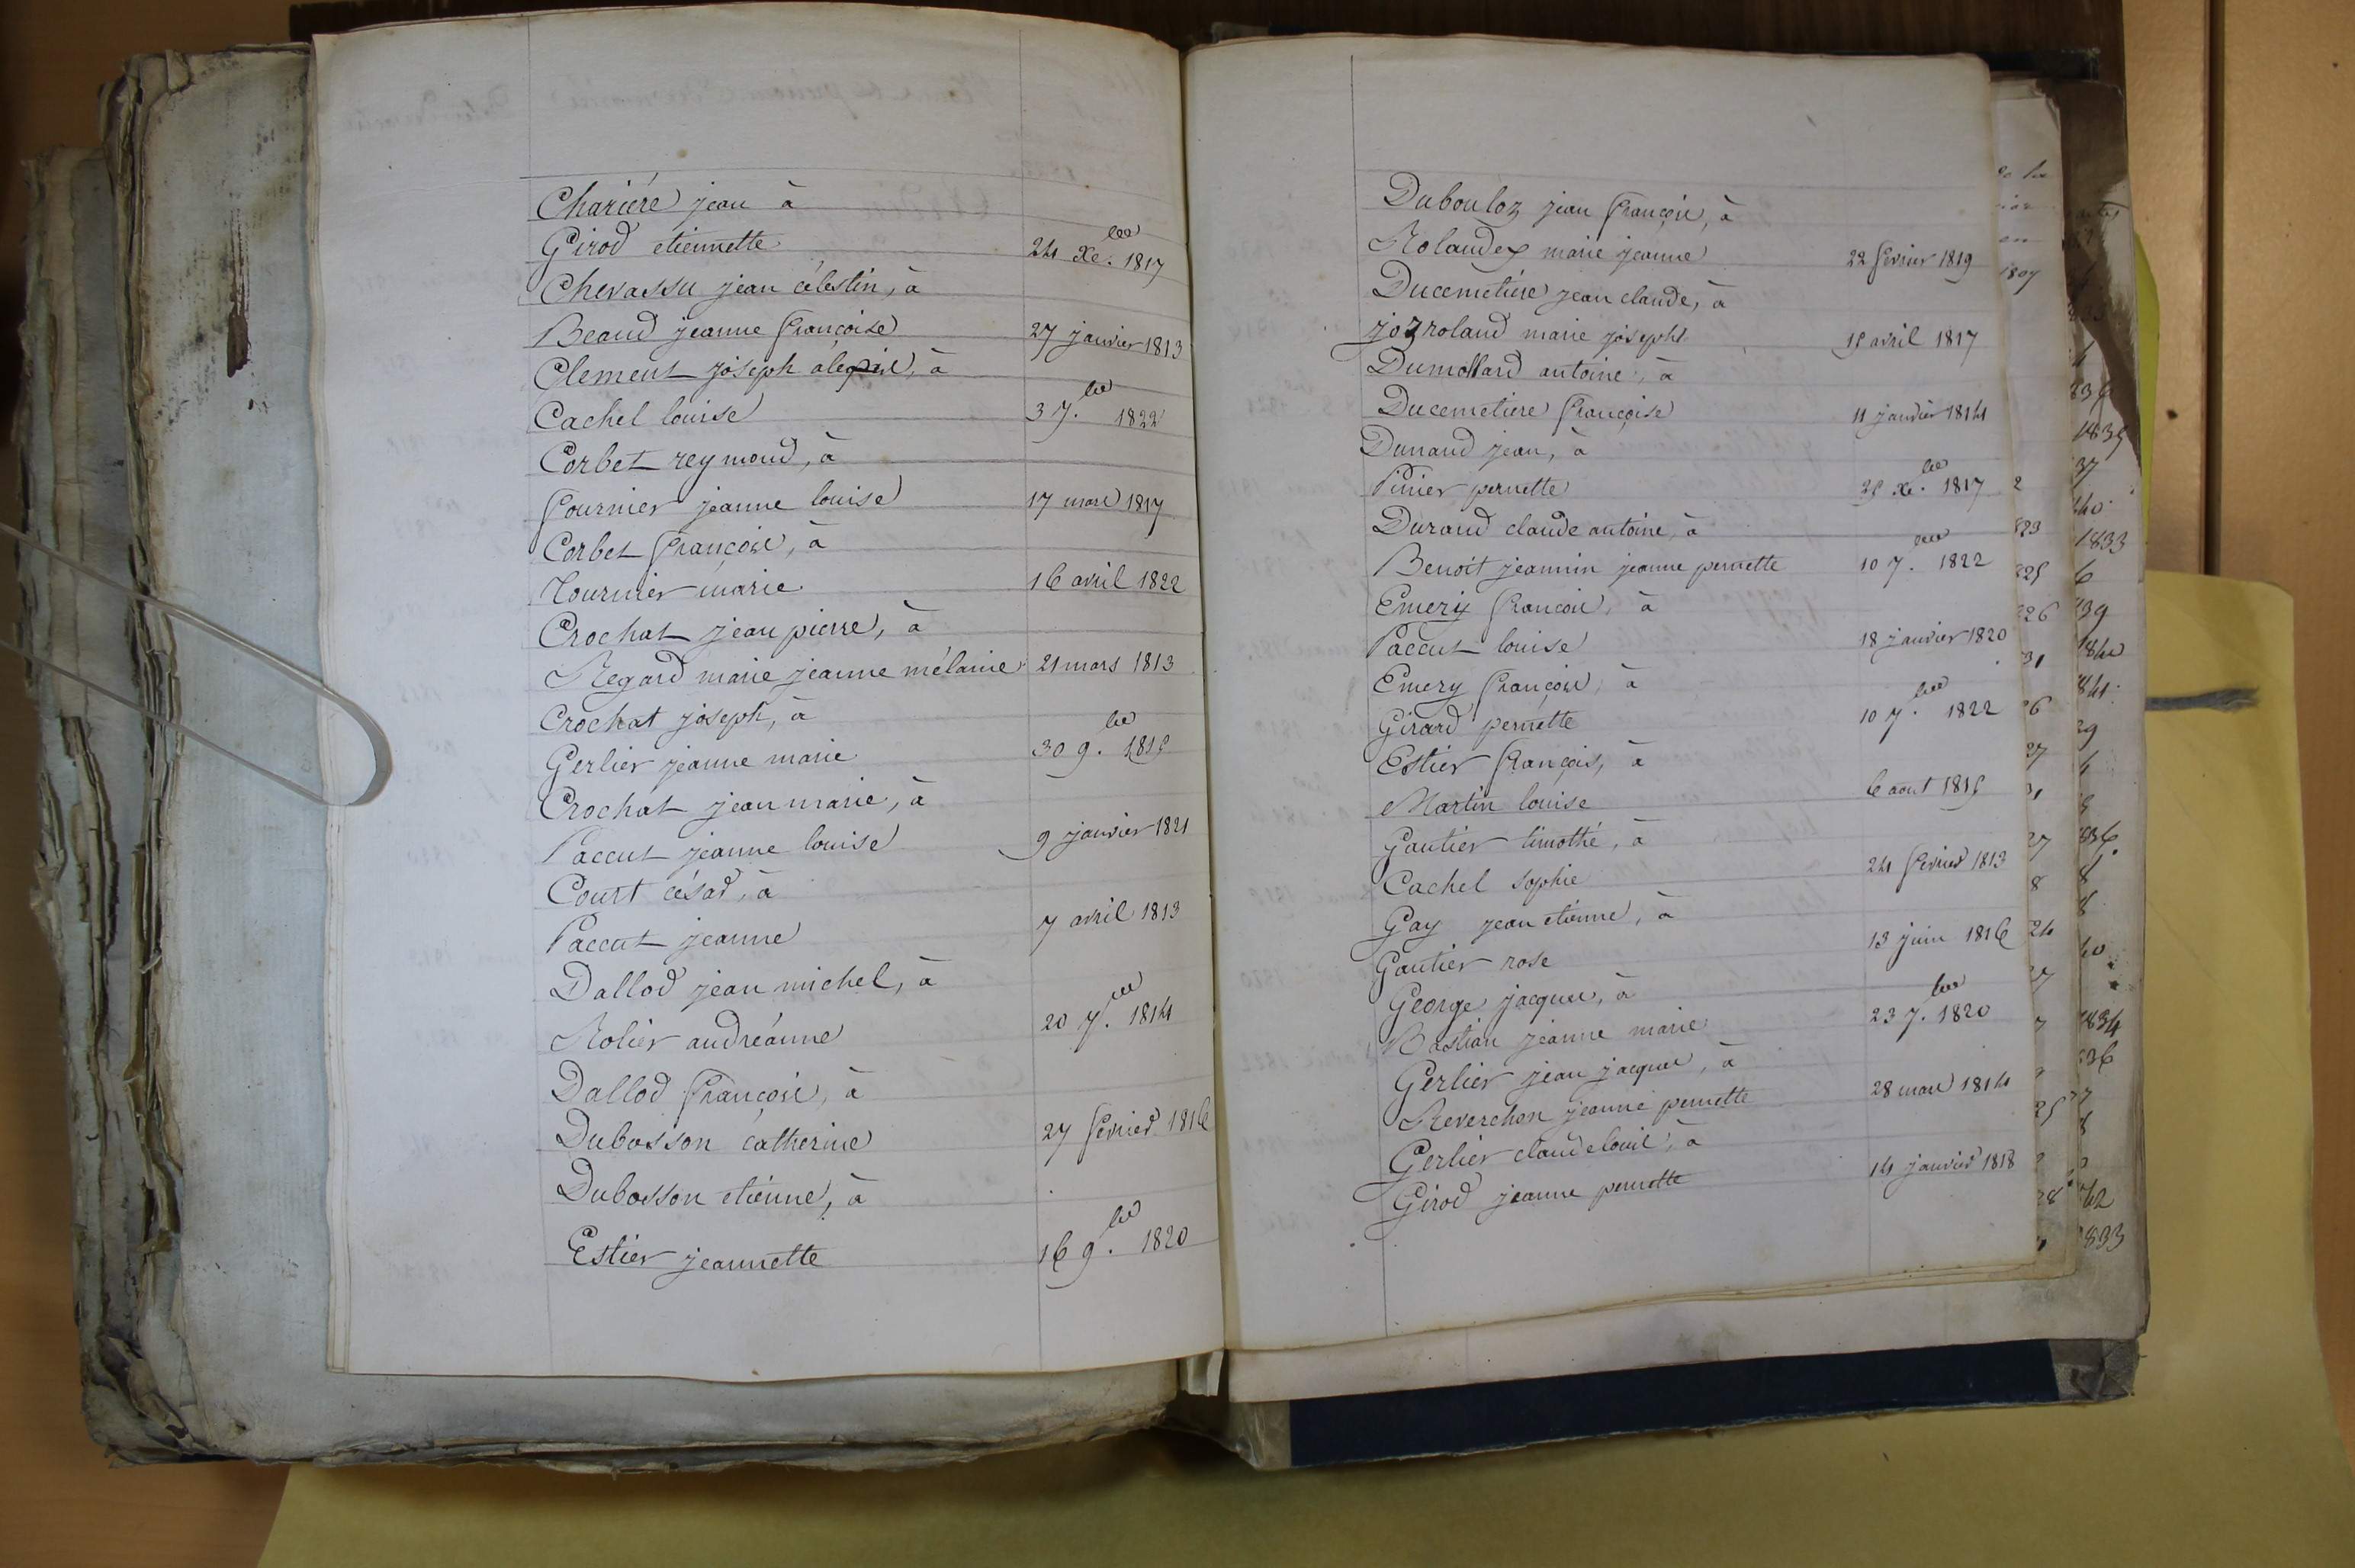 Chariére jean à
Girod etiennette 24 Xe.bre 1817
Chevassu jean célestin, à
Beaud jeanne françoise 27 janvier 1813
Clement joseph alexis, à
Cachel louise 3 7.bre 1822
Corbet reymond, à
fournier jeanne louise 17 mars 1817
Corbet françois, à
Tournier marie 16 avril 1822
Crochat jean pierre, à
Regard marie jeanne mélanie 21 mars 1813
Crochat joseph, à
Gerlier jeanne marie 30 9.bre 1815
Crochat jean marie, à
Paccut jeanne louise 9 janvier 1821
Court césar, à
Paccut jeanne 7 avril 1813
Dallod jean michel, à
Rolier andréanne 20 7.bre 1814
Dallod françois, à
Dubosson catherine 27 fevrier 1816
Dubosson etienne, à
Estier jeannette 16 9.bre 1820
Dubouloz jean françois, à
Rolandez marie jeanne 22 fevrier 1819
Ducemetiére jean claude, à
jozroland marie josephe 15 avril 1817
Dumollard antoine, à
Ducemetiere françoise 11 janvier 1814
Dunand jean, à
Pinier pernette 25 Xe.bre 1817
Durand claude antoine, à
Benoit jeannin jeanne pernette 10 7.bre 1822
Emery françois, à
Paccut louise 18 janvier 1820
Emery françois, à
Girard pernette 10 7.bre 1822
Estier françois, à
Martin louise 6 aout 1815
Gautier timothé, à
Cachel sophie 24 fevrier 1813
Gay jean etienne, à
Gautier rose 13 juin 1816
George jacques, à
Bastian jeanne marie 23 7.bre 1820
Gerlier jean jacques, à
Reverchon jeanne pernette 28 mars 1814
Gerlier claude louis, à
Girod jeanne pernette 14 janvier 1818